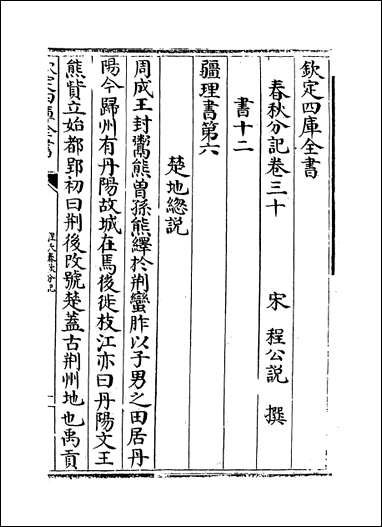 欽定四庫全書
春秋分記卷三十
宋 程公說 撰
書十二
疆理書第六
楚地總說
周成王封鬻熊曽孫熊繹於荆蠻胙以子男之田居丹
陽今歸州有丹陽故城在焉後徙枝江亦曰丹陽文王
熊貲立始都郢初曰荆後改號楚蓋古荆州地也禹貢
欽定四庫全書
春秋分記
一